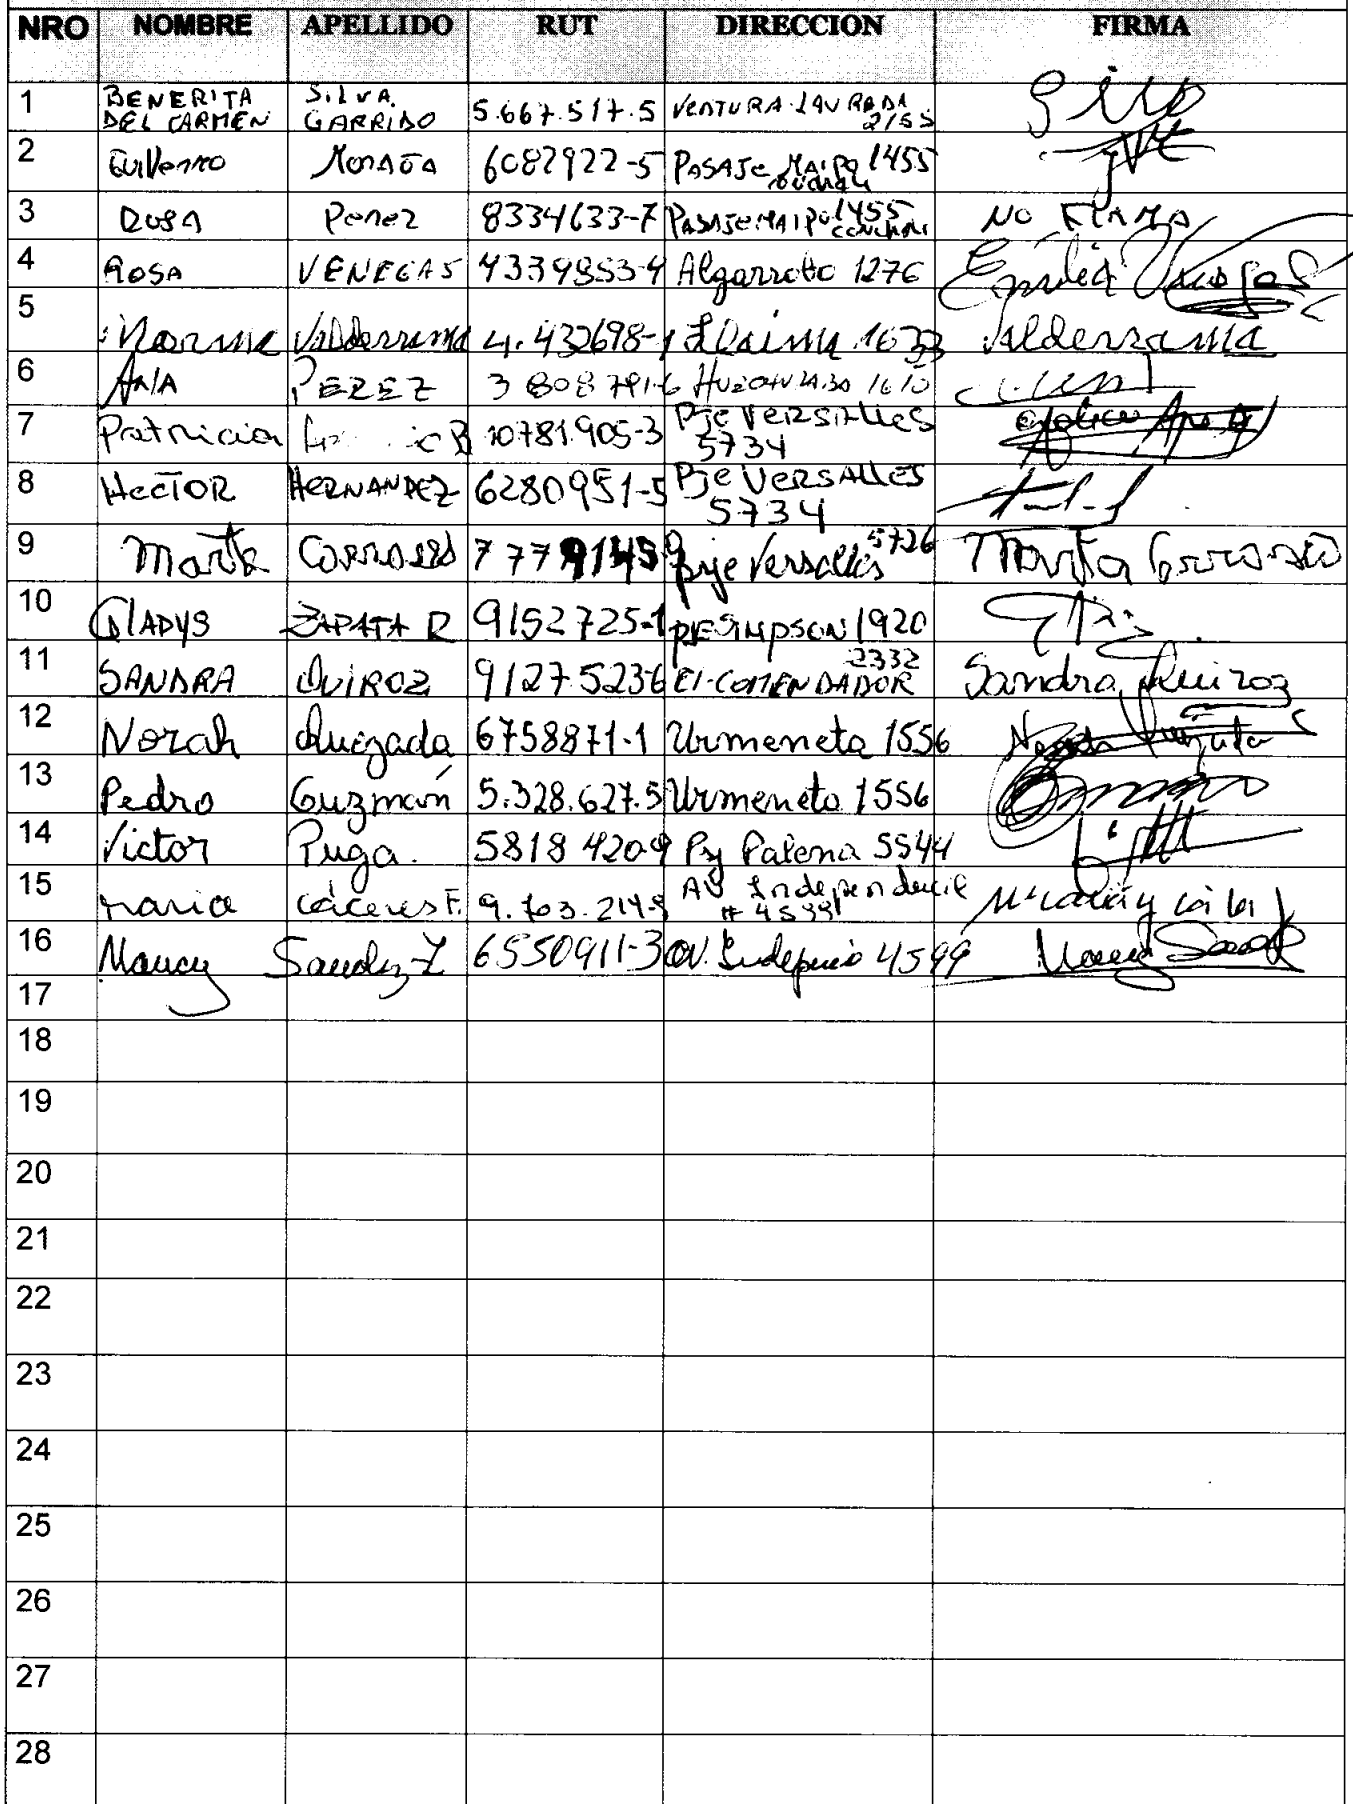 NRO NOMBRE APELLIDO RUT DIRECCION FIRMA
1 BENERITA DEL CARMEN SILVA GARRIDO 5.667.517.5 VENTURA LAVRADA 2155
2 Guillermo 6082922-5 PASAJE MAIPO 1455
3 ROSA Perez 8334633-7 PASAJE MAIPO 1455 CONCHALI NO FIRMA
4 ROSA VENEGAS 4339853-4 Algarrobo 1276
5 Norma Valderrama 4.432698-1 Llaima 1633 Valderrama
6 ANA PEREZ 3808791-6 1610
7 Patricia 10781.905-3 Pje VERSALLES 5734
8 HECTOR HERNANDEZ 6280951-5 Pje VERSALLES 5734
9 Marta 7779145 Pje Versalles 5726 Marta
10 GLADYS ZAPATA R 9152725-1 PJE SIMPSON 1920
11 SANDRA QUIROZ 9127.5236 El COMENDADOR 2332 Sandra Quiroz
12 Norah Quezada 6758871-1 Urmeneta 1556
13 Pedro Guzmán 5.328.627.5 Urmeneta 1556
14 Victor Puga. 5818420-9 Psj Palena 5544
15 maria cáceres F. 9.703.214-8 AV Independencia # 4599
16 Nancy 6550911-3 AV. 4599
17
18
19
20
21
22
23
24
25
26
27
28